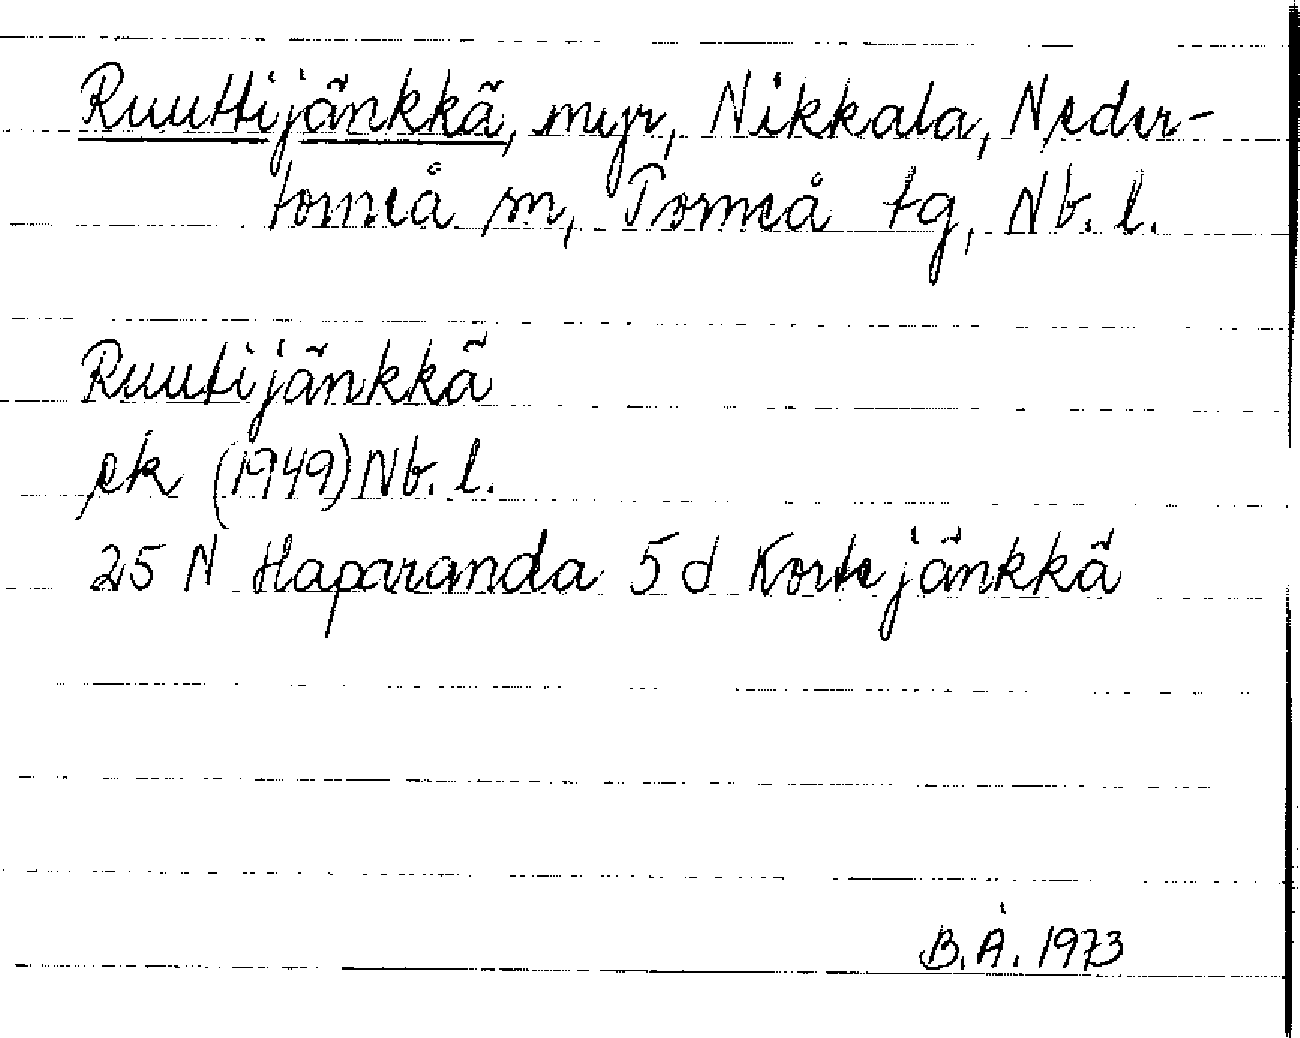 Ruuttijänkkä, myr, Nikkala, Neder-
torneå sn, Torneå tg, Nb. l.
Ruutijänkkä
ek (1949) Nb. l.
25 N Haparanda 5d Kortejänkkä
B.Å. 1973